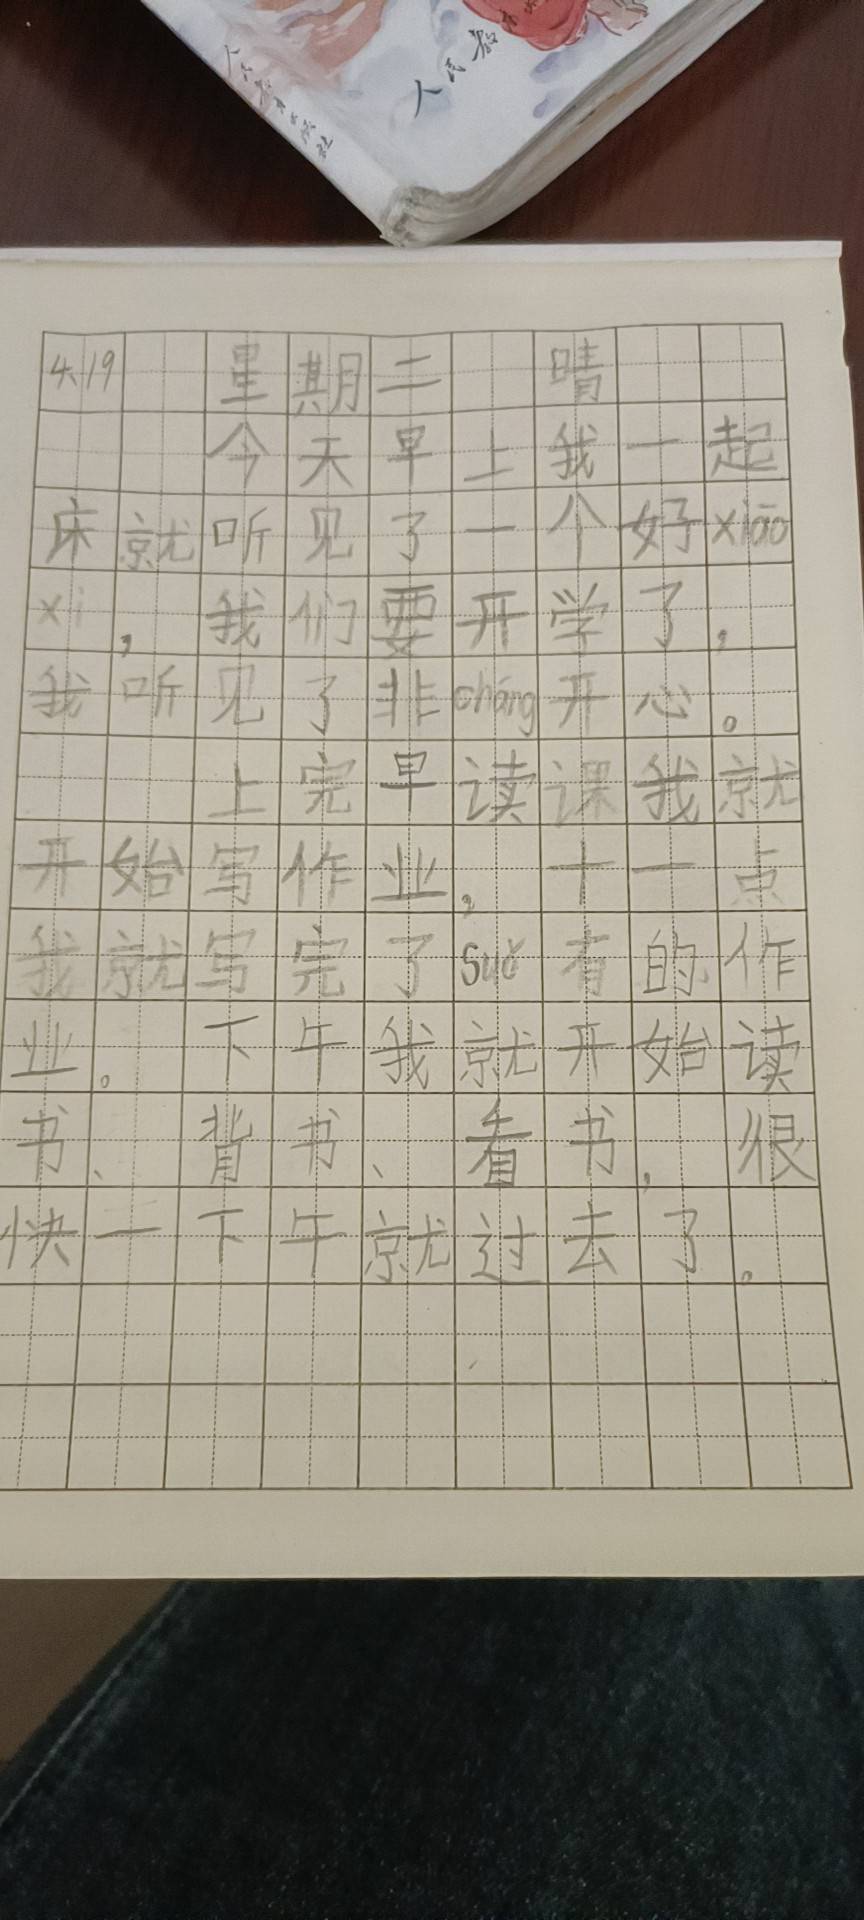 人民教育出版社
人民教育
4.19 星期二 晴
今天早上我一起
床就听见了一个好xiāo
xi，我们要开学了，
我听见了非cháng开心。
上完早读课我就
开始写作业，十一点
我就写完了suǒ有的作
业。下午我就开始读
书、背书、看书，很
快一下午就过去了。